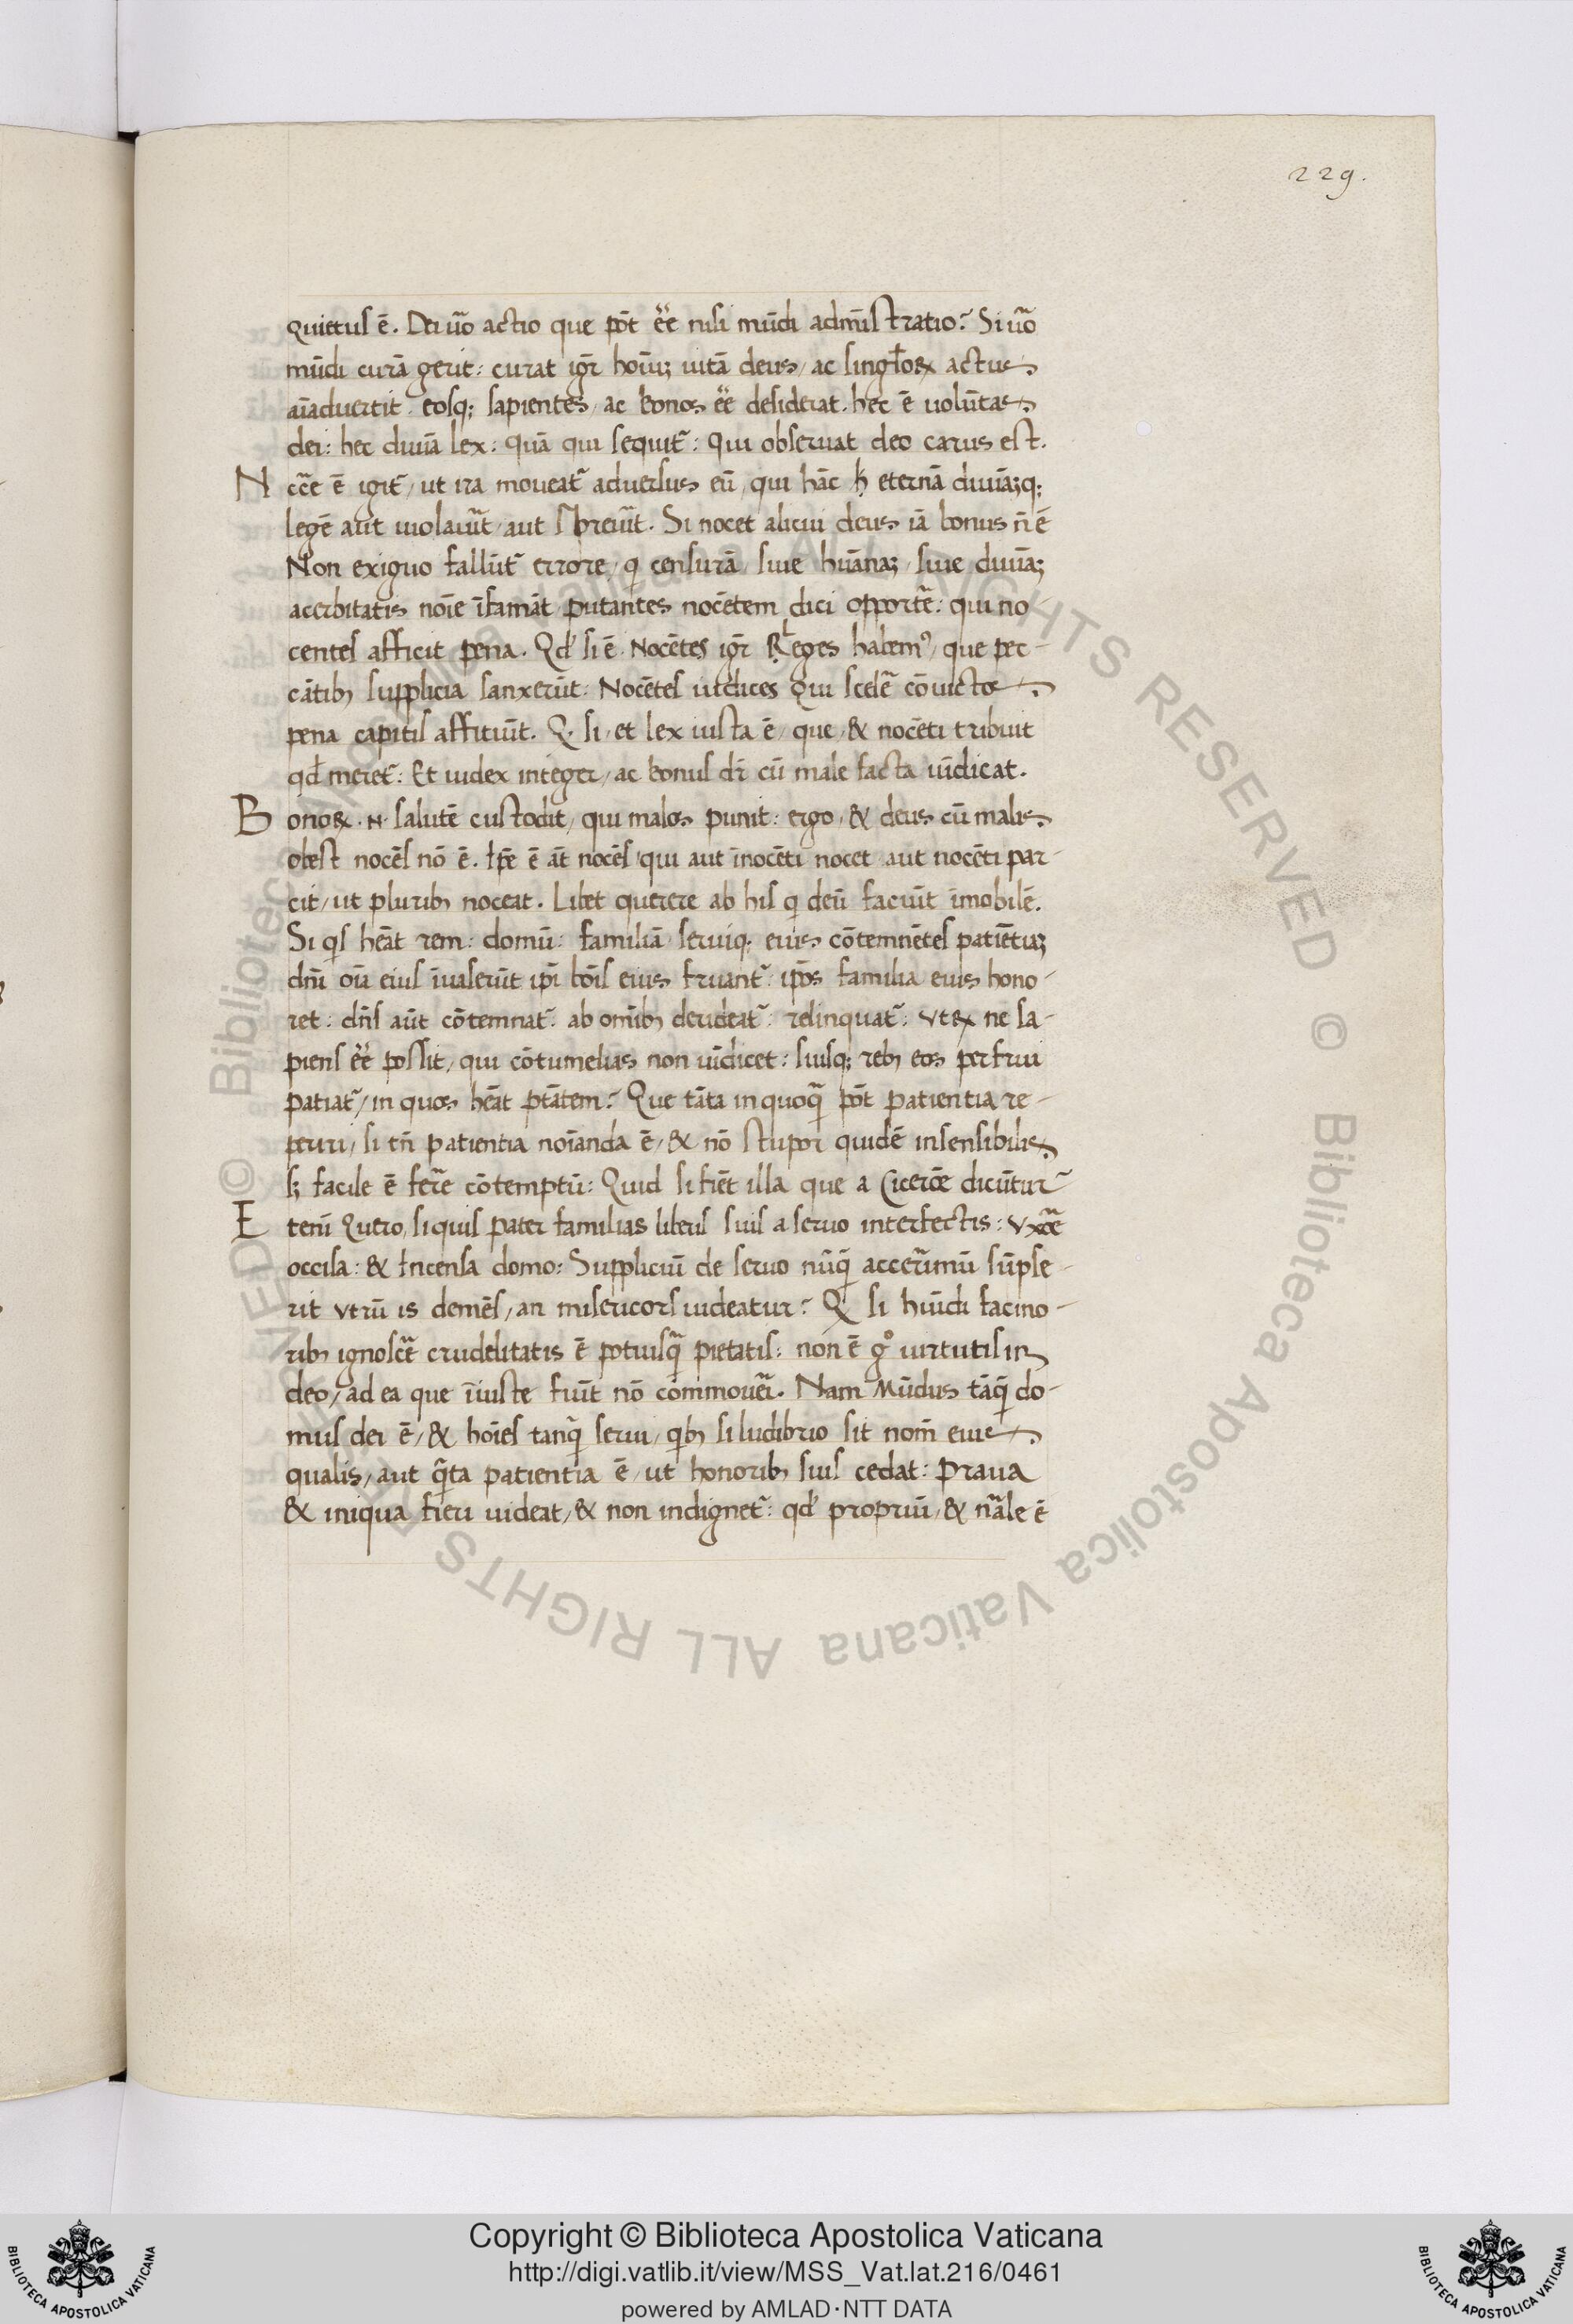 229.
quietus ē. Dei uō actio que pōt eē nisi mūdi adm̄istratio? Si uō
mūdi curā gerit: curat igr̄ hoīuꝫ uitā deus, ac singlorꝝ actus
aīaduertit. eosqꝫ sapientes, ac bonos eē desiderat. hec ē uolūtas
dei: hec diuīa lex: quā qui sequit̄: qui obseruat deo carus est.
Ncc̄e ē igit̄, ut ira moueat̄ aduersus eū, qui hāc h eternā diuīāꝫqꝫ
legē aut uiolauīt, aut spreuīt. Si nocet alicui deus iā bonus n̄ ē
Non exiguo fallūt̄ errore, q censurā, siue hūanaꝫ, siue diuīaꝫ
acerbitatis noīe īfamāt putantes nocētem dici opportē: qui no-
centes afficit pena. Qd si ē. Nocētes igr̄ Leges habemꝰ, que pec-
cātibꝫ supplicia sanxerūt: Nocētes iudices qui scelē cōuictos
pena capitis affitiūt. Q. si, et lex iusta ē, que, & nocēti tribuit
qd meret̄: Et iudex integer, ac bonus dr̄ cū male facta uīdicat.
Bonorꝝ .n. salutē custodit, qui malos punit: ergo, & deus cū malis
obest nocēs nō ē. Ip̄e ē āt nocēs qui aut īnocēti nocet aut nocēti par-
cit, ut pluribꝫ noceat. Libet querere ab his q deū faciūt īmobilē.
Si qs heāt rem: domū: familiā seruiqꝫ eius cōtemnētes patiētiaꝫ
dn̄i oīa eius īuaserūt ip̄i boīs eius fruant̄: ip̄os familia eius hono-
ret: dn̄s aūt cōtemnat̄: ab omībꝫ derideat̄: relinquat̄: Utrꝝ ne sa-
piens eē possit, qui cōtumelias non uīdicet: suisqꝫ rebꝫ eos perfrui
patiat̄, in quos heāt ptātem? Que tāta in quoq̄ pōt patientia re-
periri, si tn̄ patientia noīanda ē, & nō stupor quidē insensibilis
sꝫ facile ē ferē cōtemptū: Quid si fiēt illa que a Ciceroē dicūtur
Etenī Quero, si quis pater familias liberis suis a seruo interfectis: Uxoē
occisa: & Incensa domo: Suppliciū de seruo nūq̄ accerīmū sūpse-
rit utrū is demēs, an misericors uideatur? Q si hui᷒di facino-
ribꝫ ignoscē crudelitatis ē potiusq̄ pietatis: non ē gº uirtutis in
deo, ad ea que īiuste fiūt nō commouēi. Nam Mūdus tāq̄ do-
mus dei ē, & hoīes tanq̄ serui, qibꝫ si ludibrio sit nom̄ eius
qualis, aut q̄ta patientia ē, ut honoribꝫ suis cedat: Praua
& iniqua fieri uideat, & non indignet̄: qd propriū, & nāle ē
© Biblioteca Apostolica Vaticana ALL RIGHTS RESERVED
© Biblioteca Apostolica Vaticana ALL RIGHTS RESERVED
Copyright © Biblioteca Apostolica Vaticana
http://digi.vatlib.it/view/MSS_Vat.lat.216/0461
powered by AMLAD·NTT DATA
BIBLIOTECA APOSTOLICA VATICANA
BIBLIOTECA APOSTOLICA VATICANA